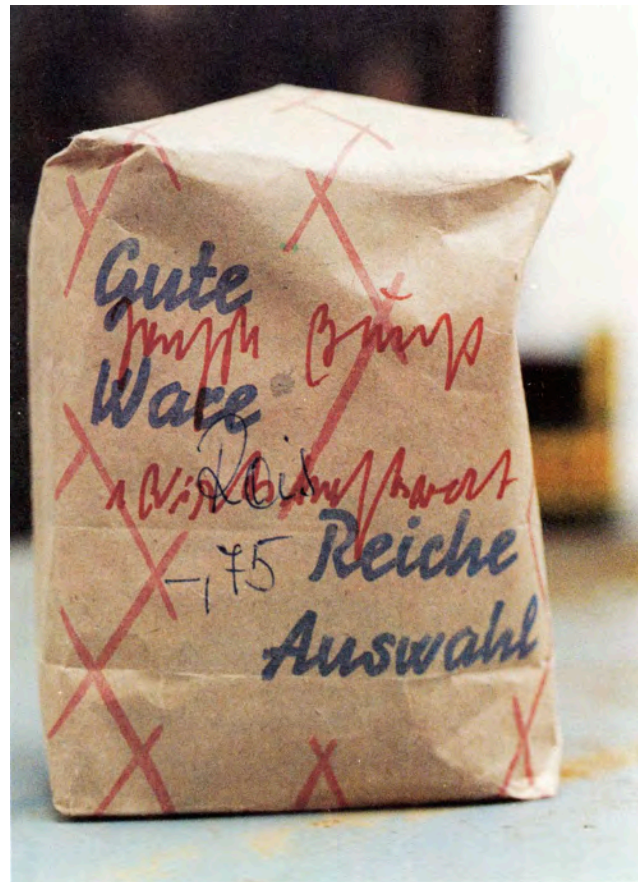 Gute
Joseph Beuys
Ware
Reis
1 Wirtschaftswert
-,75
Reiche
Auswahl